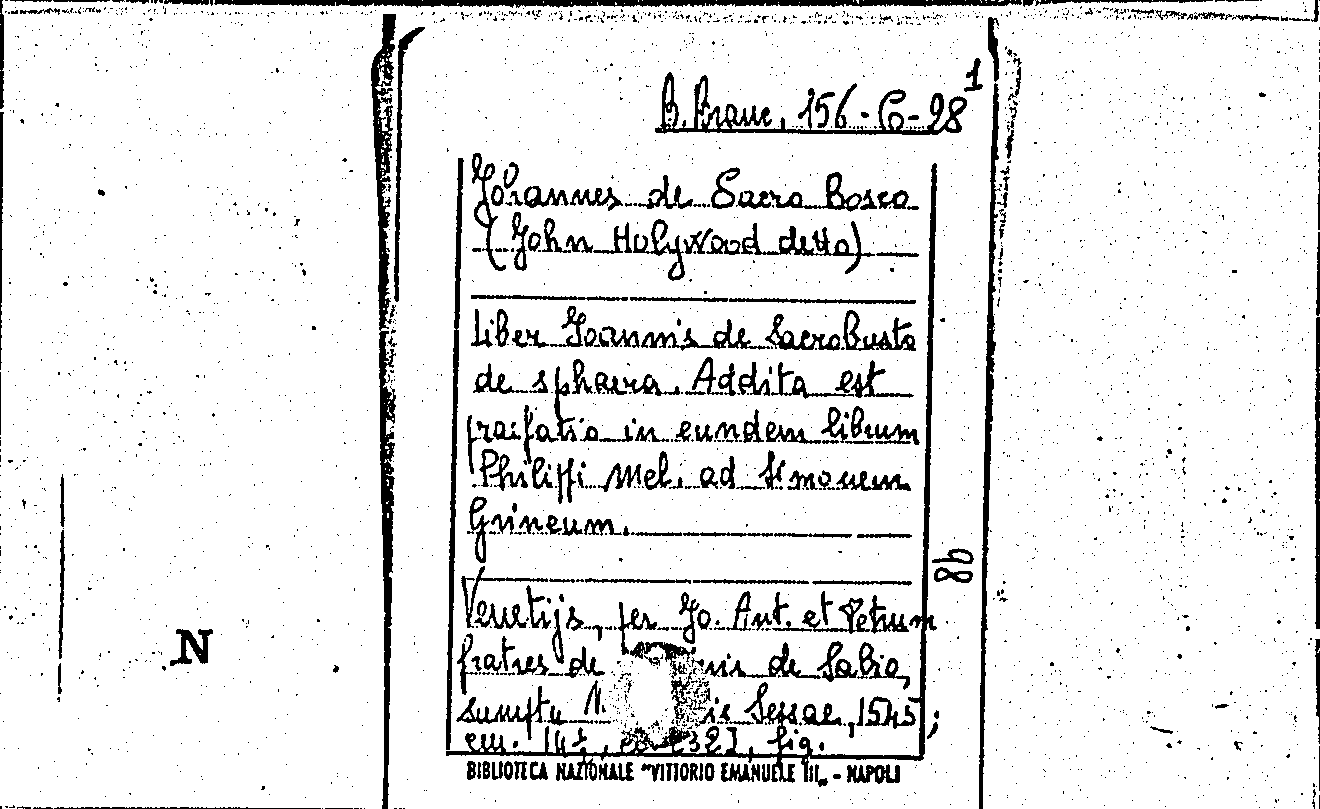 B. Branc. 156-C-28¹
Johannes de Sacro Bosco
(John Holywood detto)
Liber Joannis de Sacrobusto
de sphaera. Addita est
praefatio in eundem librum
Philippi Mel. ad Simonem
Grineum.
98
Venetijs, per Jo. Ant. et Petrum
fratres de de Sabio,
sumptu Sessae, 1545;
cm. fig.
N
BIBLIOTECA NAZIONALE "VITTORIO EMANUELE III„ - NAPOLI